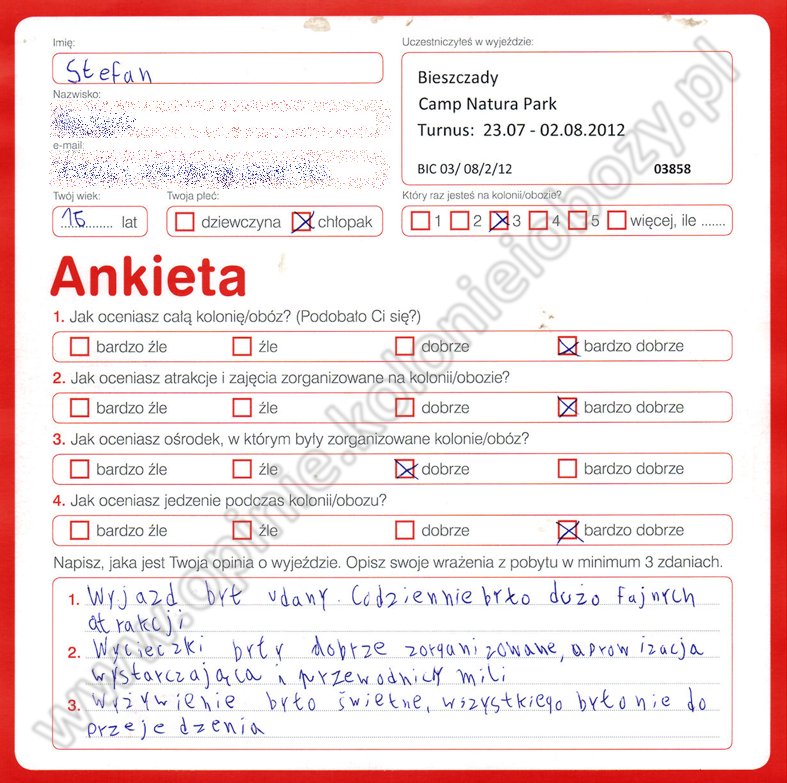 Imię:
Stefan
Uczestniczyłeś w wyjeździe:
Bieszczady
Camp Natura Park
Turnus: 23.07 - 02.08.2012
BIC 03/ 08/2/12 03858
Nazwisko:
e-mail:
Twój wiek:
15 lat
Twoja płeć:
dziewczyna chłopak
Który raz jesteś na kolonii/obozie?
1 2 3 4 5 więcej, ile .......
Ankieta
1. Jak oceniasz całą kolonię/obóz? (Podobało Ci się?)
bardzo źle źle dobrze bardzo dobrze
2. Jak oceniasz atrakcje i zajęcia zorganizowane na kolonii/obozie?
bardzo źle źle dobrze bardzo dobrze
3. Jak oceniasz ośrodek, w którym były zorganizowane kolonie/obóz?
bardzo źle źle dobrze bardzo dobrze
4. Jak oceniasz jedzenie podczas kolonii/obozu?
bardzo źle źle dobrze bardzo dobrze
Napisz, jaka jest Twoja opinia o wyjeździe. Opisz swoje wrażenia z pobytu w minimum 3 zdaniach.
1. Wyjazd był udany. Codziennie było dużo fajnych
atrakcji
2. Wycieczki były dobrze zorganizowane, aprowizacja
wystarczająca i przewodnicy mili
3. Wyżywienie było świetne, wszystkiego było nie do
przejedzenia
www.opinie.kolonieiobozy.pl